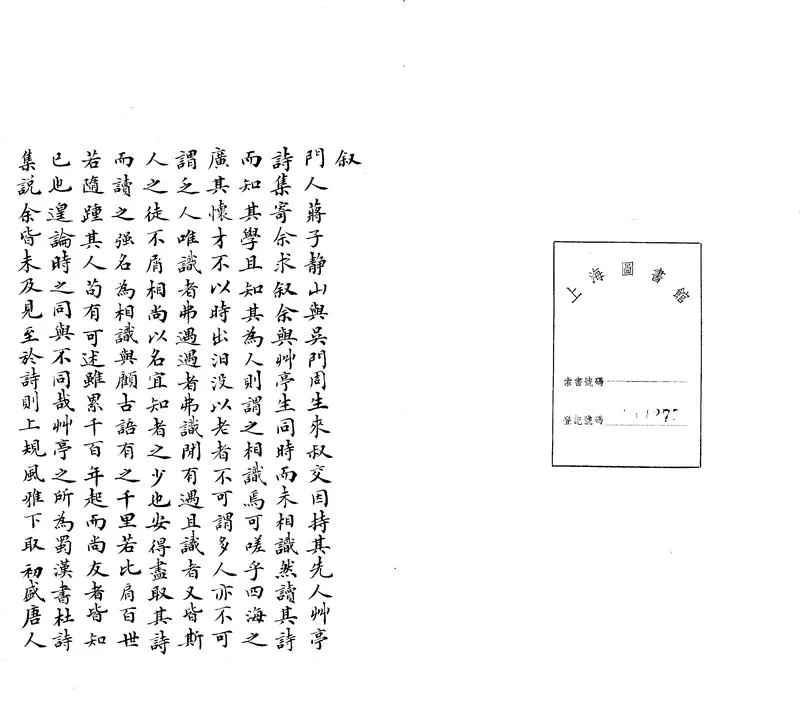 叙
門人蔣子静山與吳門周生來叔交因持其先人艸亭
詩集寄余求叙余與艸亭生同時而未相識然讀其詩
而知其學且知其為人則謂之相識焉可嗟乎四海之
廣其懷才不以時出汩没以老者不可謂多人亦不可
謂乏人唯識者弗遇遇者弗識閒有遇且識者又皆斯
人之徒不屑相尚以名宜知者之少也安得盡取其詩
而讀之强名為相識與顧古語有之千里若比肩百世
若隨踵其人苟有可述雖累千百年起而尚友者皆知
已也遑論時之同與不同哉艸亭之所為蜀漢書杜詩
集説余皆未及見至於詩則上規風雅下取初盛唐人
上海圖書館
索書號碼
登記號碼 1277